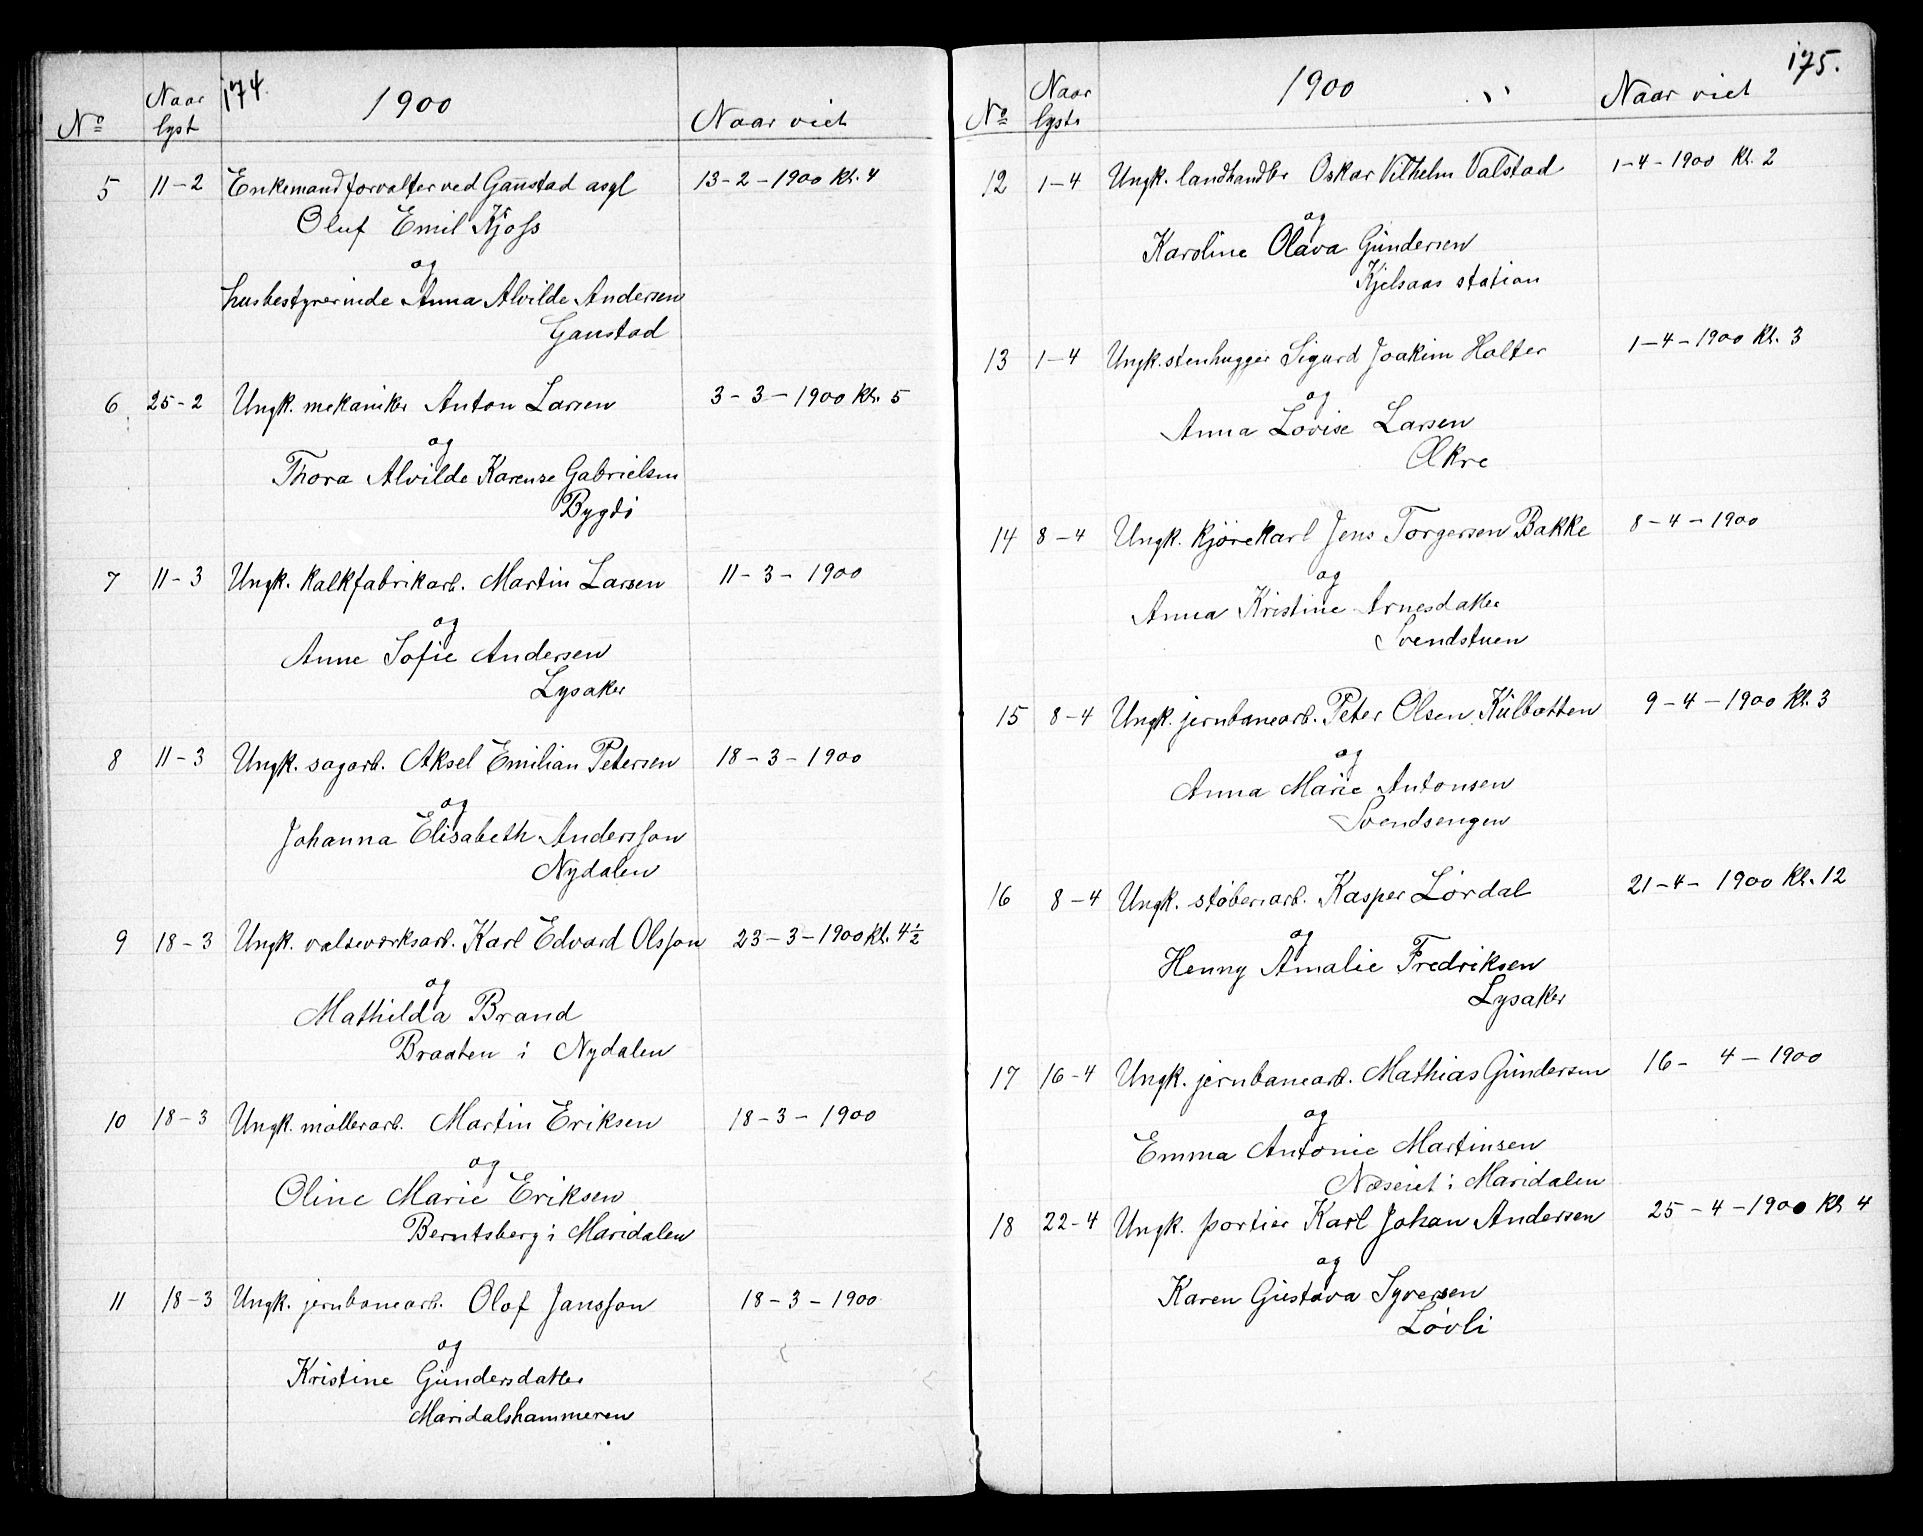 174.
No Naar lyst 1900 Naar viet
5 11-2 Enkemand forvalter ved Gaustad asyl 13-2-1900 Kl. 4
Oluf Emil Kjoss
og
husbestyrerinde Anna Alvilde Andersen
Gaustad
6 25-2 Ungk. mekaniker Anton Larsen 3-3-1900 Kl. 5
og
Thora Alvilde Karense Gabrielsen
Bygdö
7 11-3 Ungk. Kalkfabrikarb. Martin Larsen 11-3-1900
og
Anne Sofie Andersen
Lysaker
8 11-3 Ungk. sagarb. Aksel Emilian Petersen 18-3-1900
og
Johanna Elisabeth Andersson
Nydalen
9 18-3 Ungk. valseværksarb. Karl Edvard Olsson 23-3-1900 Kl. 4½
og
Mathilda Brand
Braaten i Nydalen
10 18-3 Ungk. möllerarb. Martin Eriksen 18-3-1900
og
Oline Marie Eriksen
Berntsberg i Maridalen
11 18-3 Ungk. jernbanearb. Olof Jansson 18-3-1900
og
Kristine Gundersdatter
Maridalshammeren
175.
No Naar lyst 1900 Naar viet
12 1-4 Ungk. landhandler Oskar Vilhelm Valstad 1-4-1900 Kl. 2
og
Karoline Olava Gundersen
Kjelsaas station
13 1-4 Ungk. stenhugger Sigurd Joakim Holter 1-4-1900 Kl. 3
og
Anna Lovise Larsen
Økre
14 8-4 Ungk. Kjörekarl Jens Torgersen Bakke 8-4-1900
og
Anna Kristine Arnesdatter
Svendstuen
15 8-4 Ungk. jernbanearb. Peter Olsen Kulbotten 9-4-1900 Kl. 3
og
Anna Marie Antonsen
Svendsengen
16 8-4 Ungk. stöberiarb. Kasper Lördal 21-4-1900 Kl. 12
og
Henny Amalie Fredriksen
Lysaker
17 16-4 Ungk. jernbanearb. Mathias Gundersen 16-4-1900
og
Emma Antonie Martinsen
Næseiet i Maridalen
18 22-4 Ungk. portier Karl Johan Andersen 25-4-1900 Kl 4
og
Karen Gustava Syversen
Lövli